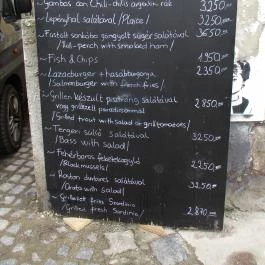 ~Gambas con Chili - chilis argentin rák 3250.-
~Lepényhal salátával /Plaice/ 3250.-
~Füstölt sonkába göngyölt sügér salátával 3650.-
/Roll-perch with smoked ham/
~Fish & Chips 1950.-
~Lazacburger + hasábburgonya 2350.-
/Salmonburger with french fries/
~Grillen készült pisztráng salátával
vagy grillezett paradicsommal 2850.-
/Grilled trout with salad or grill tomatoes/
~Tengeri süllő salátával 3250.-
/Bass with salad/
~Fehérboros feketekagyló 2250.-
/Black mussels/
~Roston durbincs salátával 3250.-
/Orata with salad/
~Grillezett friss Szardínia
/Grilled fresh Sardinia/ 2870.-